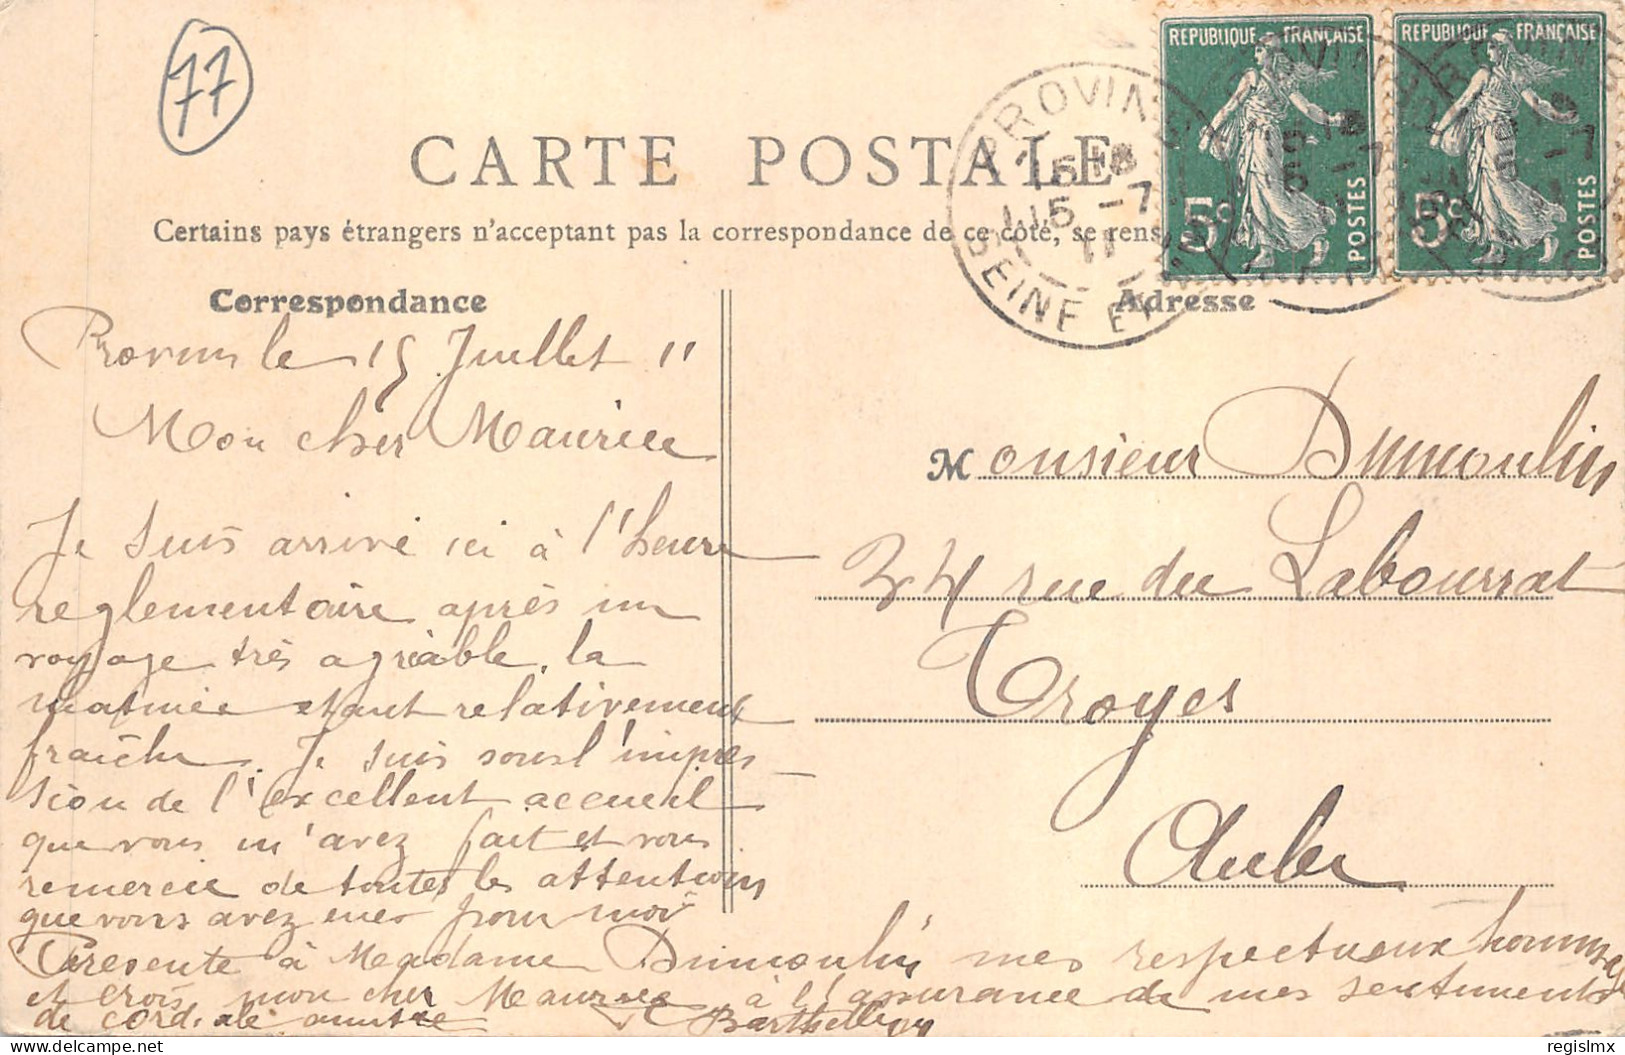 77
CARTE POSTALE
REPUBLIQUE FRANÇAISE
5c
POSTES
REPUBLIQUE FRANÇAISE
5c
POSTES
PROVINS
15 -7
11
SEINE ET
Certains pays étrangers n'acceptant pas la correspondance de ce côté, se rens
Correspondance
Adresse
Provins le 15 Juillet 11
Mon cher Maurice
Je suis arrivé ici à l'heure
reglementaire après un
voyage très agréable, la
matinée etant relativement
fraîche. Je suis sous l'impres
sion de l'excellent accueil
que vous m'avez fait et vous
remercie de toutes les attentions
que vous avez eues pour moi
Présente à Madame Dumoulin mes respectueux hommages
et crois, mon cher Maurice, à l'assurance de mes sentiments
de cordiale amitié
Barthellemy
Monsieur Dumoulin
34 rue du Labourrat
Troyes
Aube
delcampe.net
regislmx